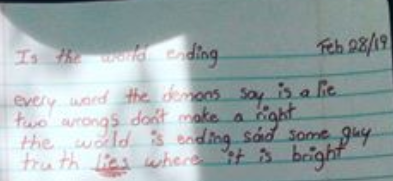 Is the world ending Feb 28/19
every word the demons say is a lie
two wrongs don't make a right
the world is ending said some guy
truth lies where it is bright